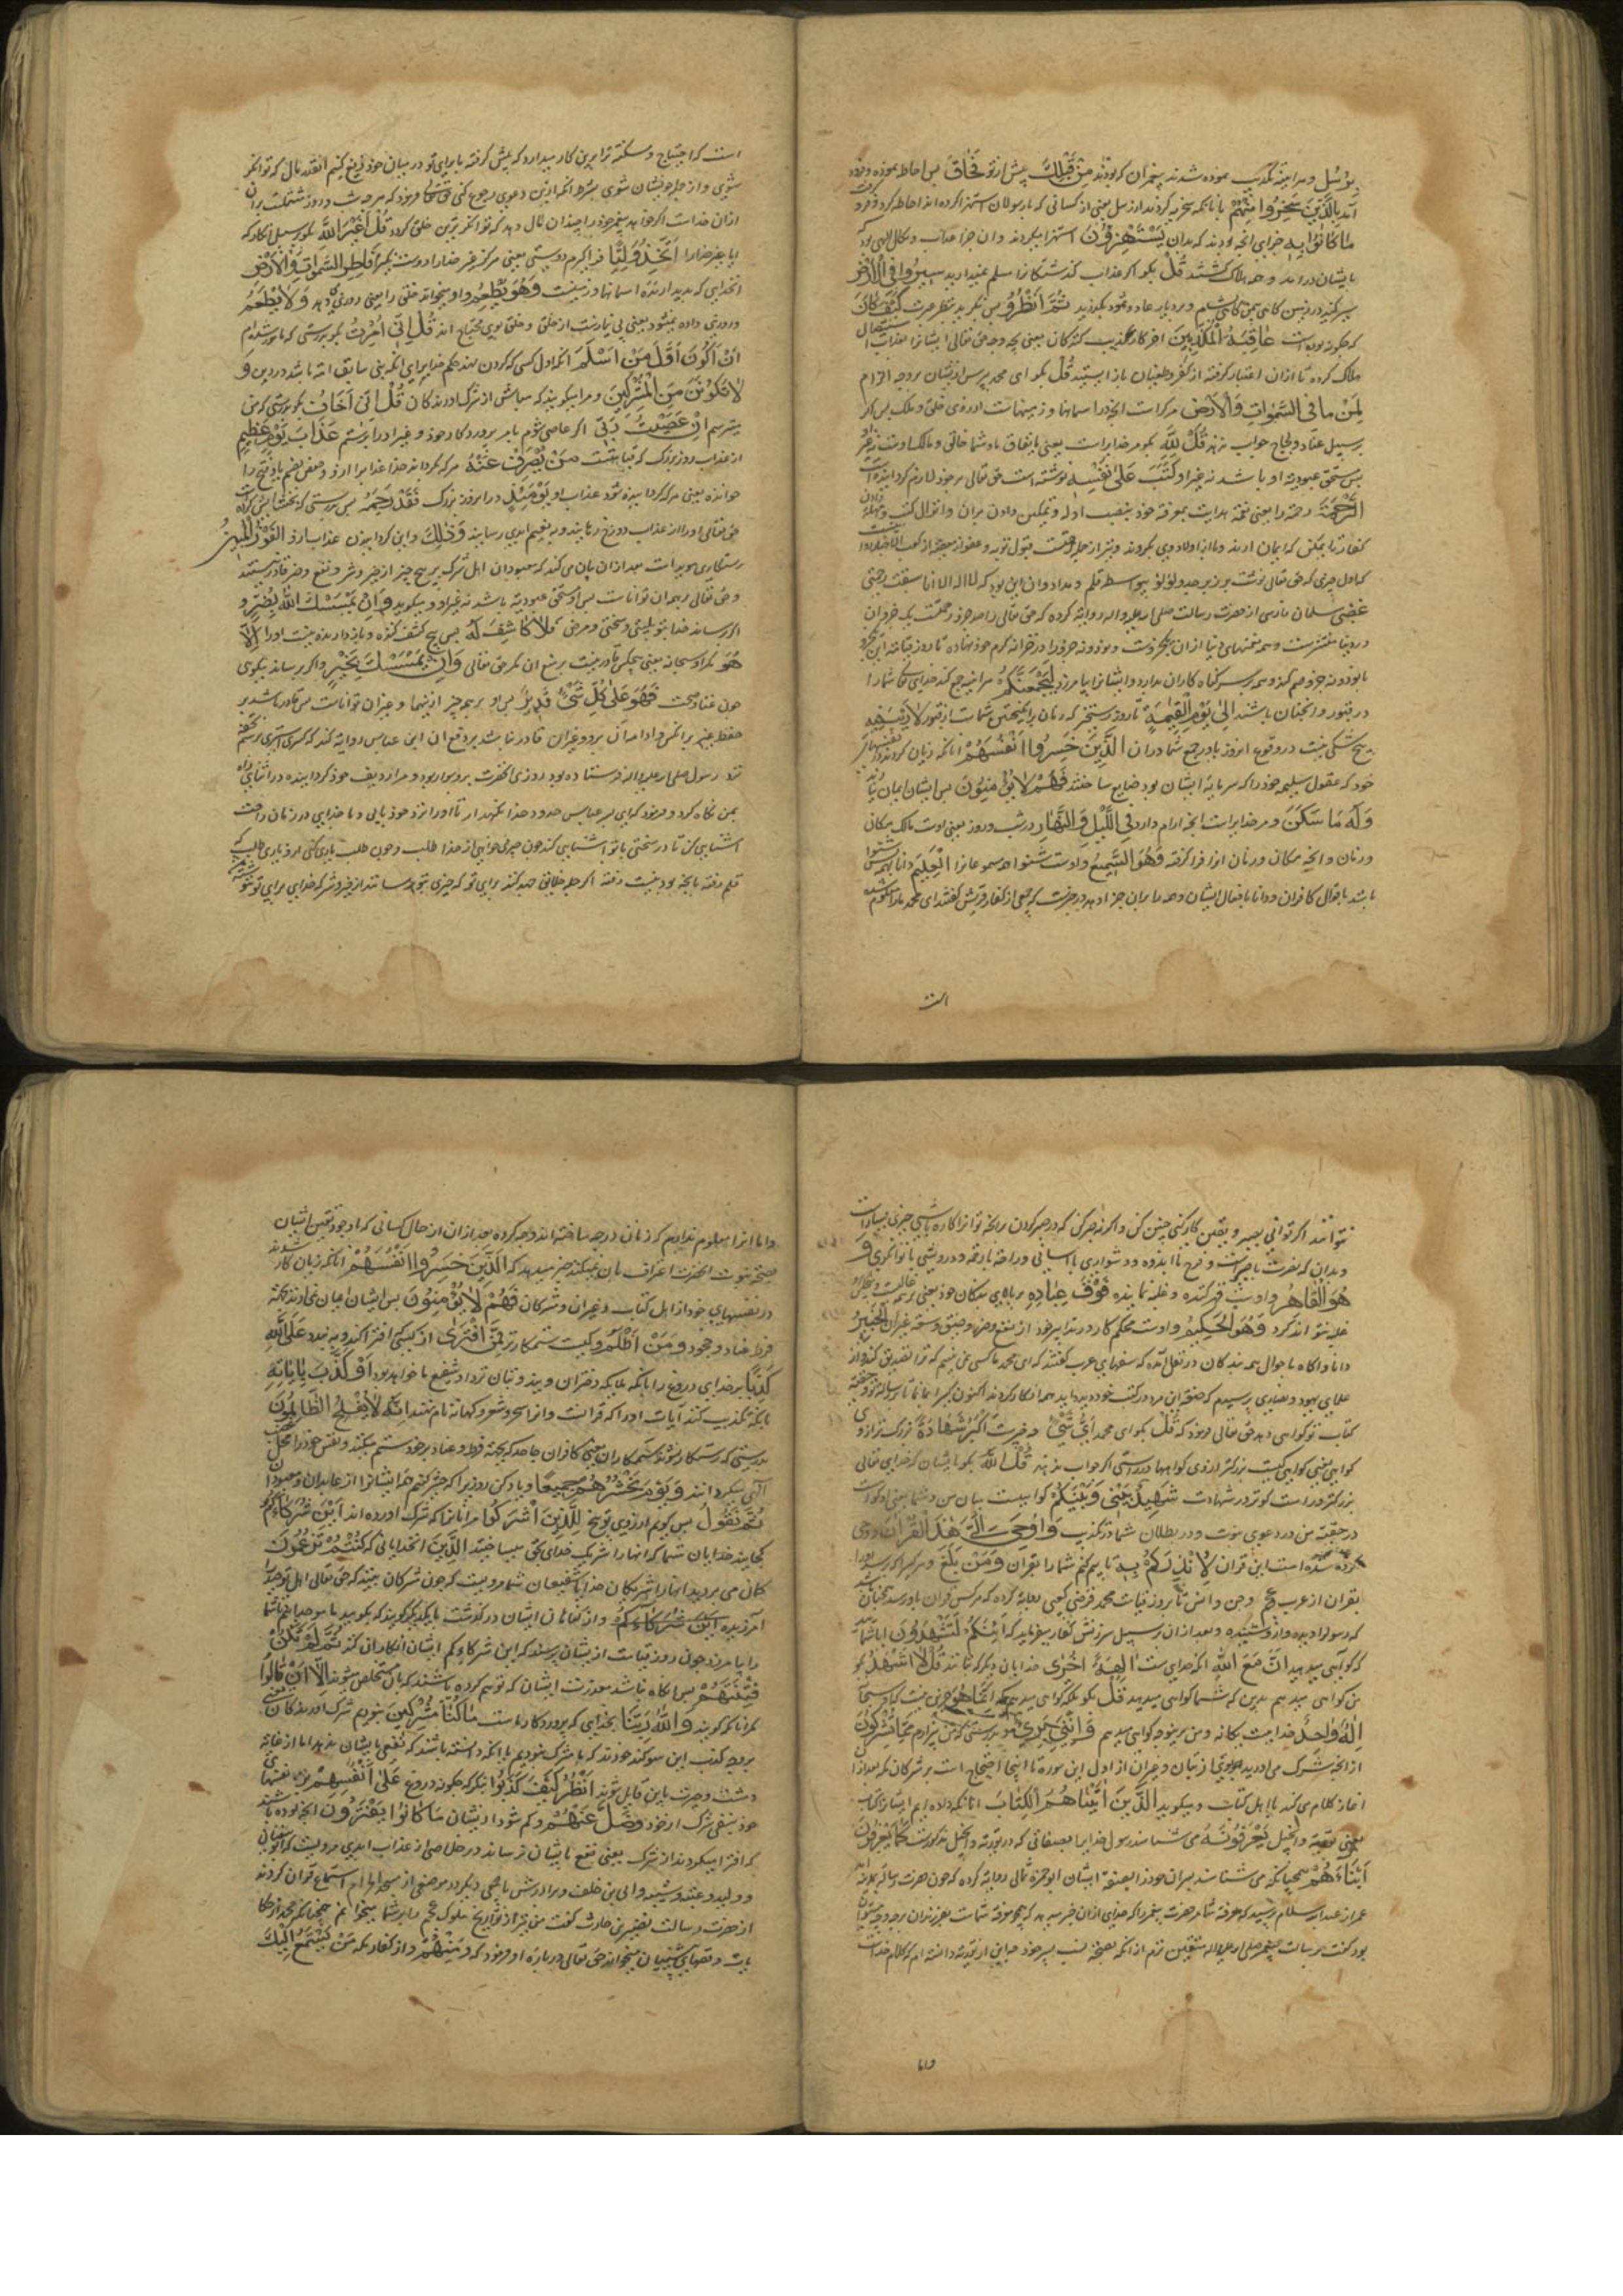 برسل و هر آینه تکذیب نموده شدند پیغمبران که بودند مِنْ قَبْلِكَ پیش از تو فَحَاقَ پس احاطه نموده و فرود
آمد بِالَّذِينَ سَخِرُوا مِنْهُمْ بآنانکه سخریه کردند از رسل یعنی از کسانی که با رسولان استهزا کرده اند احاطه کرد و فرو گرفت
مَا كَانُوا بِهِ جزای آنچه بودند که بدان يَسْتَهْزِؤُنَ استهزا میکردند و آن جزا عذاب و نکال الهی بود که
بایشان در آمد و همه هلاک گشتند قُلْ بگو اگر عذاب گذشتگانرا مسلم نمیدارید سِيرُوا فِي الْأَرْضِ
سیر کنید در زمین ثُمَّ انْظُرُوا پس بنگرید بنظر عبرت كَيْفَ كَانَ
که چگونه بوده است عَاقِبَةُ الْمُكَذِّبِينَ آخر کار تکذیب کنندگان یعنی بچه وجه حق تعالی ایشانرا بعذاب استیصال
هلاک کرده تا از آن اعتبار گرفته از کفر و طغیان باز ایستید قُلْ بگو ای محمد بپرس از ایشان بر وجه الزام
لِمَنْ مَا فِي السَّمٰوَاتِ وَالْأَرْضِ مر کراست آنچه در آسمانها و زمینهاست از روی خلق و ملک پس اگر
بر سبیل عناد و لجاج جواب ندهند قُلْ لِلّٰهِ بگو مر خدایراست یعنی باتفاق ما و شما خالق و مالک اوست نه غیر
پس مستحق عبودیت او باشد نه غیر او كَتَبَ عَلَىٰ نَفْسِهِ نوشته است حق تعالی بر خود لازم گردانیده است
الرَّحْمَةَ رحمة را یعنی نعمة هدایت بمعرفة خود بنصب ادله و تمکین دادن بران و انزال کتب و مهلت دادن
کفار تا ممکن که ایمان آرند
که اول چیزی که حق تعالی نوشت بواسطه قلم و مداد و آن این بود که لا اله الا انا سبقت رحمتی
غضبی سلمان فارسی از حضرت رسالت صلی الله علیه و آله روایة کرده که حق تعالی را صد جزو رحمتست یک جزو آن
در دنیا منتشرست و همه نعمتهای دنیا از آن یکجزوست و نود و نه جزو را در خزانه کرم خود نهاده تا روز قیامة این یکجزو
با نود و نه جزو ضم کند و همه بر سر گناه کاران بدارد و ایشانرا بیامرزد لَيَجْمَعَنَّكُمْ هر آینه جمع کند خدای تعالی شما را
در قبور و اکفان باشند إِلَىٰ يَوْمِ الْقِيٰمَةِ تا روز رستخیز که زمان برانگیختن شماست از قبور لَا رَيْبَ فِيهِ
هیچ شکی نیست در وقوع آن روز الَّذِينَ خَسِرُوا أَنْفُسَهُمْ آنانکه زیان کردند در نفسهای
خود که عقول سلیمه خود را که سرمایه ایشان بود ضایع ساختند فَهُمْ لَا يُؤْمِنُونَ پس ایشان ایمان نیارند
وَلَهُ مَا سَكَنَ و مر خدایراست آنچه آرام دارد فِي اللَّيْلِ وَالنَّهَارِ در شب و روز یعنی اوست مالک مکان
و زمان و آنچه مکان و زمان آنرا فرا گرفته وَهُوَ السَّمِيعُ و اوست شنوا همه مسموعاترا الْعَلِيمُ دانا بهمه پس شنوا
باشد باقوال کافران و دانا بافعال ایشان و همه را بران جزا دهد در خبرست که جمعی از کفار قریش گفتند ای محمد ما را معلوم شده
است
است که احتیاج و مسکنة ترا برین کار میدارد که پیش گرفته بیا برای تو در میان خود توزیع کنیم آنقدر مال که توانگر
شوی و از جمله خویشان شوی بشرط آنکه ازین دعوی رجوع کنی حق تعالی فرمود که هر چه شب و روز مشتملست بران
از آن خداست اگر خواهد پیغمبر خود را چندان مال دهد که توانگرترین خلق گردد قُلْ أَغَيْرَ اللّٰهِ بگو بر سبیل انکار که
آیا بغیر خدا را أَتَّخِذُ وَلِيًّا فرا گیرم دوستی یعنی هرگز غیر خدا را دوست نگیرم فَاطِرِ السَّمٰوَاتِ وَالْأَرْضِ
آن خدایی که پدید آورنده آسمانها و زمینست وَهُوَ يُطْعِمُ و او میخوراند خلق را یعنی روزی میدهد وَلَا يُطْعَمُ
و روزی داده نمیشود یعنی بی نیازست از خلق و خلق بوی محتاج اند قُلْ إِنِّي أُمِرْتُ بگو بدرستی که مامور شده ام
أَنْ أَكُونَ أَوَّلَ مَنْ أَسْلَمَ آنکه اول کسی که گردن نهد حکم خدایرا برای آنکه نبی سابق امة باشد در دین وَ
لَا تَكُونَنَّ مِنَ الْمُشْرِكِينَ و مرا میگویند که مباش از شرک آورندگان قُلْ إِنِّي أَخَافُ بگو بدرستی که من
میترسم إِنْ عَصَيْتُ رَبِّي اگر عاصی شوم بامر پروردگار خود و غیر او را پرستم عَذَابَ يَوْمٍ عَظِيمٍ
از عذاب روز بزرگ که قیامتست مَنْ يُصْرَفْ عَنْهُ هر که بگرداند خدا عذابرا ازو
خوانده یعنی هر که گردانیده شود عذاب او يَوْمَئِذٍ در آن روز بزرگ فَقَدْ رَحِمَهُ پس بدرستی که بخشایش کرده است
حق تعالی او را از عذاب دوزخ رهانیده و به نعیم ابدی رسانید وَذٰلِكَ و این گردانیدن عذاب ازو الْفَوْزُ الْمُبِينُ
رستگاری هویداست بعد از آن بیان می کند که معبودان اهل شرک بر هیچ چیز از خیر و شر و نفع و ضر قادر نیستند
و حق تعالی بر همه آن تواناست پس او مستحق عبودیة باشد نه غیر او و میگوید وَإِنْ يَمْسَسْكَ اللّٰهُ بِضُرٍّ و
اگر برساند خدا بتو بلیتی و سختی و مرض فَلَا كَاشِفَ لَهُ پس هیچ کشف کننده و باز دارنده نیست او را إِلَّا
هُوَ مگر او سبحانه یعنی هیچکس قادر نیست بر منع آن مگر حق تعالی وَإِنْ يَمْسَسْكَ بِخَيْرٍ و اگر برساند نیکوی
چون غنا و صحت فَهُوَ عَلَىٰ كُلِّ شَيْءٍ قَدِيرٌ پس او بر همه چیز از اینها و غیر آن تواناست پس قادر باشد بر
حفظ و ادامه آن و غیر آن قادر نباشد بر دفع آن ابن عباس روایة کند که کسری استری برسم تحفه
نزد رسول صلی الله علیه و آله فرستاده بود روزی آنحضرت بر و سوار بود و مرا ردیف خود گردانیده در اثنای راه
بمن نگاه کرد و فرمود که ای پسر عباس حدود خدا نگهدار تا او را نزد خود یابی و با خدای در زمان راحت
آشنایی کن تا در سختی با تو آشنایی کند چون چیزی خواهی از خدا طلب و چون طلب یاری کنی ازو یاری طلب که
قلم رفته بآنچه بودنیست اگر همه خلایق جهد کنند برای تو که چیزی بتو رسانند از خیر و شر که خدای برای تو ننوشته باشد
نتوانند اگر توانی بصبر و یقین کار کنی چنین کن و اگر نه صبر کن که در صبر کردن بر آنچه تو آنرا کاره باشی چیزی بسیارست
و بدان که نصرت با صبرست و فرح با اندوه و دشواری با آسانی وَ
هُوَ الْقَاهِرُ و اوست قهر کننده و غلبه نماینده فَوْقَ عِبَادِهِ بر بالای بندگان خود یعنی بر همه غالبست
غلبه نتواند کرد وَهُوَ الْحَكِيمُ و اوست محکم کار در تدابیر خود الْخَبِيرُ
دانا و آگاه باحوال همه بندگان در نقل آمده که سفهای عرب گفتند که ای محمد ما کسی نمی بینیم که ترا تصدیق کند و از
علمای یهود و نصاری پرسیدیم که صفة این مرد در کتب خود دیده اید همه انکار کردند اکنون
کتاب تو گواهی دهد حق تعالی فرمود که قُلْ بگو ای محمد أَيُّ شَيْءٍ چه چیزست أَكْبَرُ شَهَادَةً بزرگتر از روی
گواهی یعنی گواهی کیست بزرگتر از روی گواهها و راستی اگر جواب ندهند قُلِ اللّٰهُ بگو بایشان که خدای تعالی
بزرگتر و راست گوتر در شهادت شَهِيدٌ بَيْنِي وَبَيْنَكُمْ گواهیست میان من و شما یعنی او گواست
در حقیة من در دعوی نبوت و در بطلان شما در تکذیب وَأُوحِيَ إِلَيَّ هٰذَا الْقُرْآنُ و وحی
کرده شده است این قرآن لِأُنْذِرَكُمْ بِهِ تا بیم کنم شما را بقرآن وَمَنْ بَلَغَ و هر که را که رسد او را
بقرآن از عرب و عجم و جن و انس تا روز قیامت محمد قرظی کعبی روایة کرده که هر کس قرآن باو رسد چنانست
که رسول او را دیده و از وی شنیده و بعد از آن بر سبیل سرزنش کفار میفرماید که أَئِنَّكُمْ لَتَشْهَدُونَ آیا شمایید
که گواهی میدهید أَنَّ مَعَ اللّٰهِ آنکه خدایست آلِهَةً أُخْرَىٰ خدایان دیگر که بتانند قُلْ لَا أَشْهَدُ بگو
من گواهی نمیدهم بدین که شما گواهی میدهید قُلْ بگو بلکه گواهی میدهم که إِنَّمَا هُوَ جز این نیست که او سبحانه
إِلٰهٌ وَاحِدٌ خداییست یگانه و من برین وجه گواهی میدهم وَإِنَّنِي بَرِيءٌ و بدرستی که من بیزارم مِمَّا تُشْرِكُونَ
از آنچه شرک می آورید از بتان و غیر آن از اول این سوره تا اینجا احتجاج است بر مشرکان مکه بعد از آن
آغاز کلام می کند با اهل کتاب و میگوید الَّذِينَ آتَيْنَاهُمُ الْكِتَابَ آنانکه داده ایم ایشانرا کتاب
یعنی توریة و انجیل يَعْرِفُونَهُ می شناسند رسول خدایرا بصفاتی که در توریة و انجیل مذکورست كَمَا يَعْرِفُونَ
أَبْنَاءَهُمْ همچنانکه می شناسند پسران خود را بصفة ایشان ابو حمزه ثمالی روایة کرده که چون حضرت رسالة بمدینه آمد
عمر از عبد الله سلام پرسید که معرفة شما بحضرت پیغمبر که خدای از آن خبر میدهد که همچو معرفة شماست بفرزندان بر چه وجه میتواند
بود گفت بر رسالت پیغمبر صلی الله علیه و آله متیقن ترم از آنکه بصحة نسب پسر خود چه این از توریة دانسته ام که کلام خداست
و اما
و اما آنرا معلوم ندارم که زنان در چه ساخته اند و چه کرده بعد از آن از حال کسانی که با وجود تیقن ایشان
بصحة نبوت آنحضرت اعتراف بآن نمیکنند خبر میدهد که الَّذِينَ خَسِرُوا أَنْفُسَهُمْ آنانکه زیان کار شدند
در نفسهای خود از اهل کتاب و غیر آن و مشرکان فَهُمْ لَا يُؤْمِنُونَ پس ایشان ایمان نمی آرند بجهة
فرط عناد و جحود وَمَنْ أَظْلَمُ و کیست ستمکارتر مِمَّنِ افْتَرَىٰ از کسی که افترا کند و به بندد عَلَى اللّٰهِ
كَذِبًا بر خدای دروغ را بآنکه ملایکه دختران ویند و بتان نزد او شفیع ما خواهند بود أَوْ كَذَّبَ بِآيَاتِهِ
یا آنکه تکذیب کند آیات او را که قرآنست و آنرا سحر و شعر و کهانة نام نهند إِنَّهُ لَا يُفْلِحُ الظَّالِمُونَ
بدرستی که رستگار نشوند ستمکاران یعنی کافران جاحد که بجهة فرط عناد بر خود ستم میکنند و نفس خود را مستحق
الهی میگردانند وَيَوْمَ نَحْشُرُهُمْ جَمِيعًا و یاد کن روزیرا که حشر کنم همه ایشانرا از عابدان و معبودان
ثُمَّ نَقُولُ پس گویم از روی توبیخ لِلَّذِينَ أَشْرَكُوا مر آنانرا که شرک آورده اند أَيْنَ شُرَكَاؤُكُمُ
کجایند خدایان شما که آنها را شریک خدای تعالی میساختید الَّذِينَ آن خدایانی که كُنْتُمْ تَزْعُمُونَ
گمان می بردید آنها را شریکان خدا یا شفیعان شما مرویست که چون مشرکان بینند که حق تعالی اهل توحید را
آمرزیده أَيْنَ شُرَكَاؤُكُمُ و از گناهان ایشان در گذشت با یکدیگر گویند که بگویید ما موحدانیم تا شما
را بیامرزد چون روز قیامت از یشان پرسند که این شرکاؤکم ایشان انکار آن کنند ثُمَّ لَمْ تَكُنْ
فِتْنَتُهُمْ پس آنگاه نباشد معذرت ایشان که توهم کرده باشند که بآن متخلص شوند إِلَّا أَنْ قَالُوا
مگر آنکه گویند وَاللّٰهِ رَبِّنَا بخدایی که پروردگار ماست مَا كُنَّا مُشْرِكِينَ نبودیم شرک آورندگان یعنی
بر وجه کذب این سوگند خورند که ما مشرک نبودیم با آنکه دانسته باشند که نفعی بایشان ندهد اما از غایة
دهشت و حیرت باین قایل شوند انْظُرْ كَيْفَ كَذَبُوا بنگر که چگونه دروغ عَلَىٰ أَنْفُسِهِمْ بر نفسهای
خود بنفی شرک از خود وَضَلَّ عَنْهُمْ و گم شود از یشان مَا كَانُوا يَفْتَرُونَ آنچه بوده باشند
که افترا میکردند از شرک یعنی نفع بایشان نرساند در خلاصی از عذاب ابدی مرویست که ابو سفیان
و ولید و عتبه و شیبه و ابی بن خلف و برادرش با جمعی دیگر در موضعی از مسجد الحرام استماع قرآن کردند
از حضرت رسالت نضر بن حارث گفت من نیز از تواریخ ملوک عجم برابر شما میخوانم همچنانکه محمد از حکایات
پیشینیان میخواند حق تعالی در باره او فرمود که وَمِنْهُمْ و از کفار مکه مَنْ يَسْتَمِعُ إِلَيْكَ